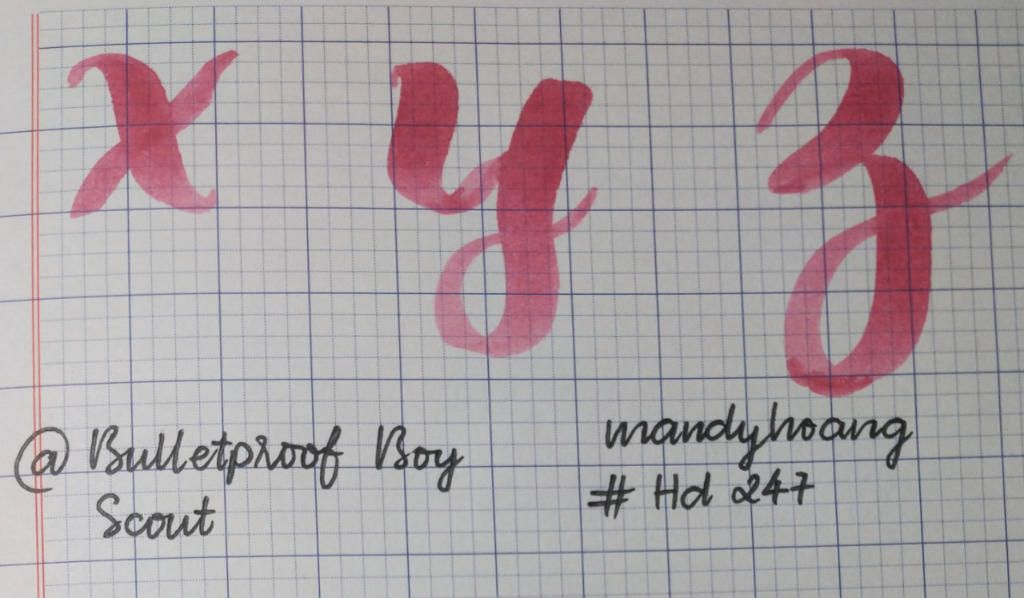 x y z
@ Bulletproof Boy
Scout
mandyhoang
# Hd 247